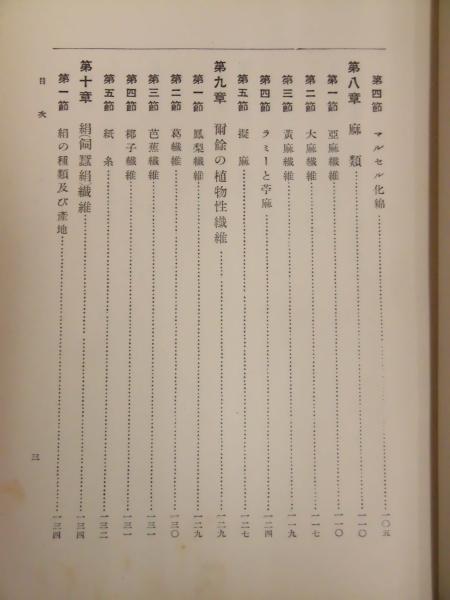 第四節 マルセル化綿 一〇五
第八章 麻類 一一〇
第一節 亞麻纖維 一一〇
第二節 大麻纖維 一一七
第三節 黃麻纖維 一一九
第四節 ラミーと苧麻 一二四
第五節 擬麻 一二七
第九章 爾餘の植物性纖維 一二九
第一節 鳳梨纖維 一二九
第二節 葛纖維 一三〇
第三節 芭蕉纖維 一三一
第四節 椰子纖維 一三一
第五節 紙糸 一三二
第十章 絹(飼蠶絹纖維 一三四
第一節 絹の種類及び產地 一三四
目次
三